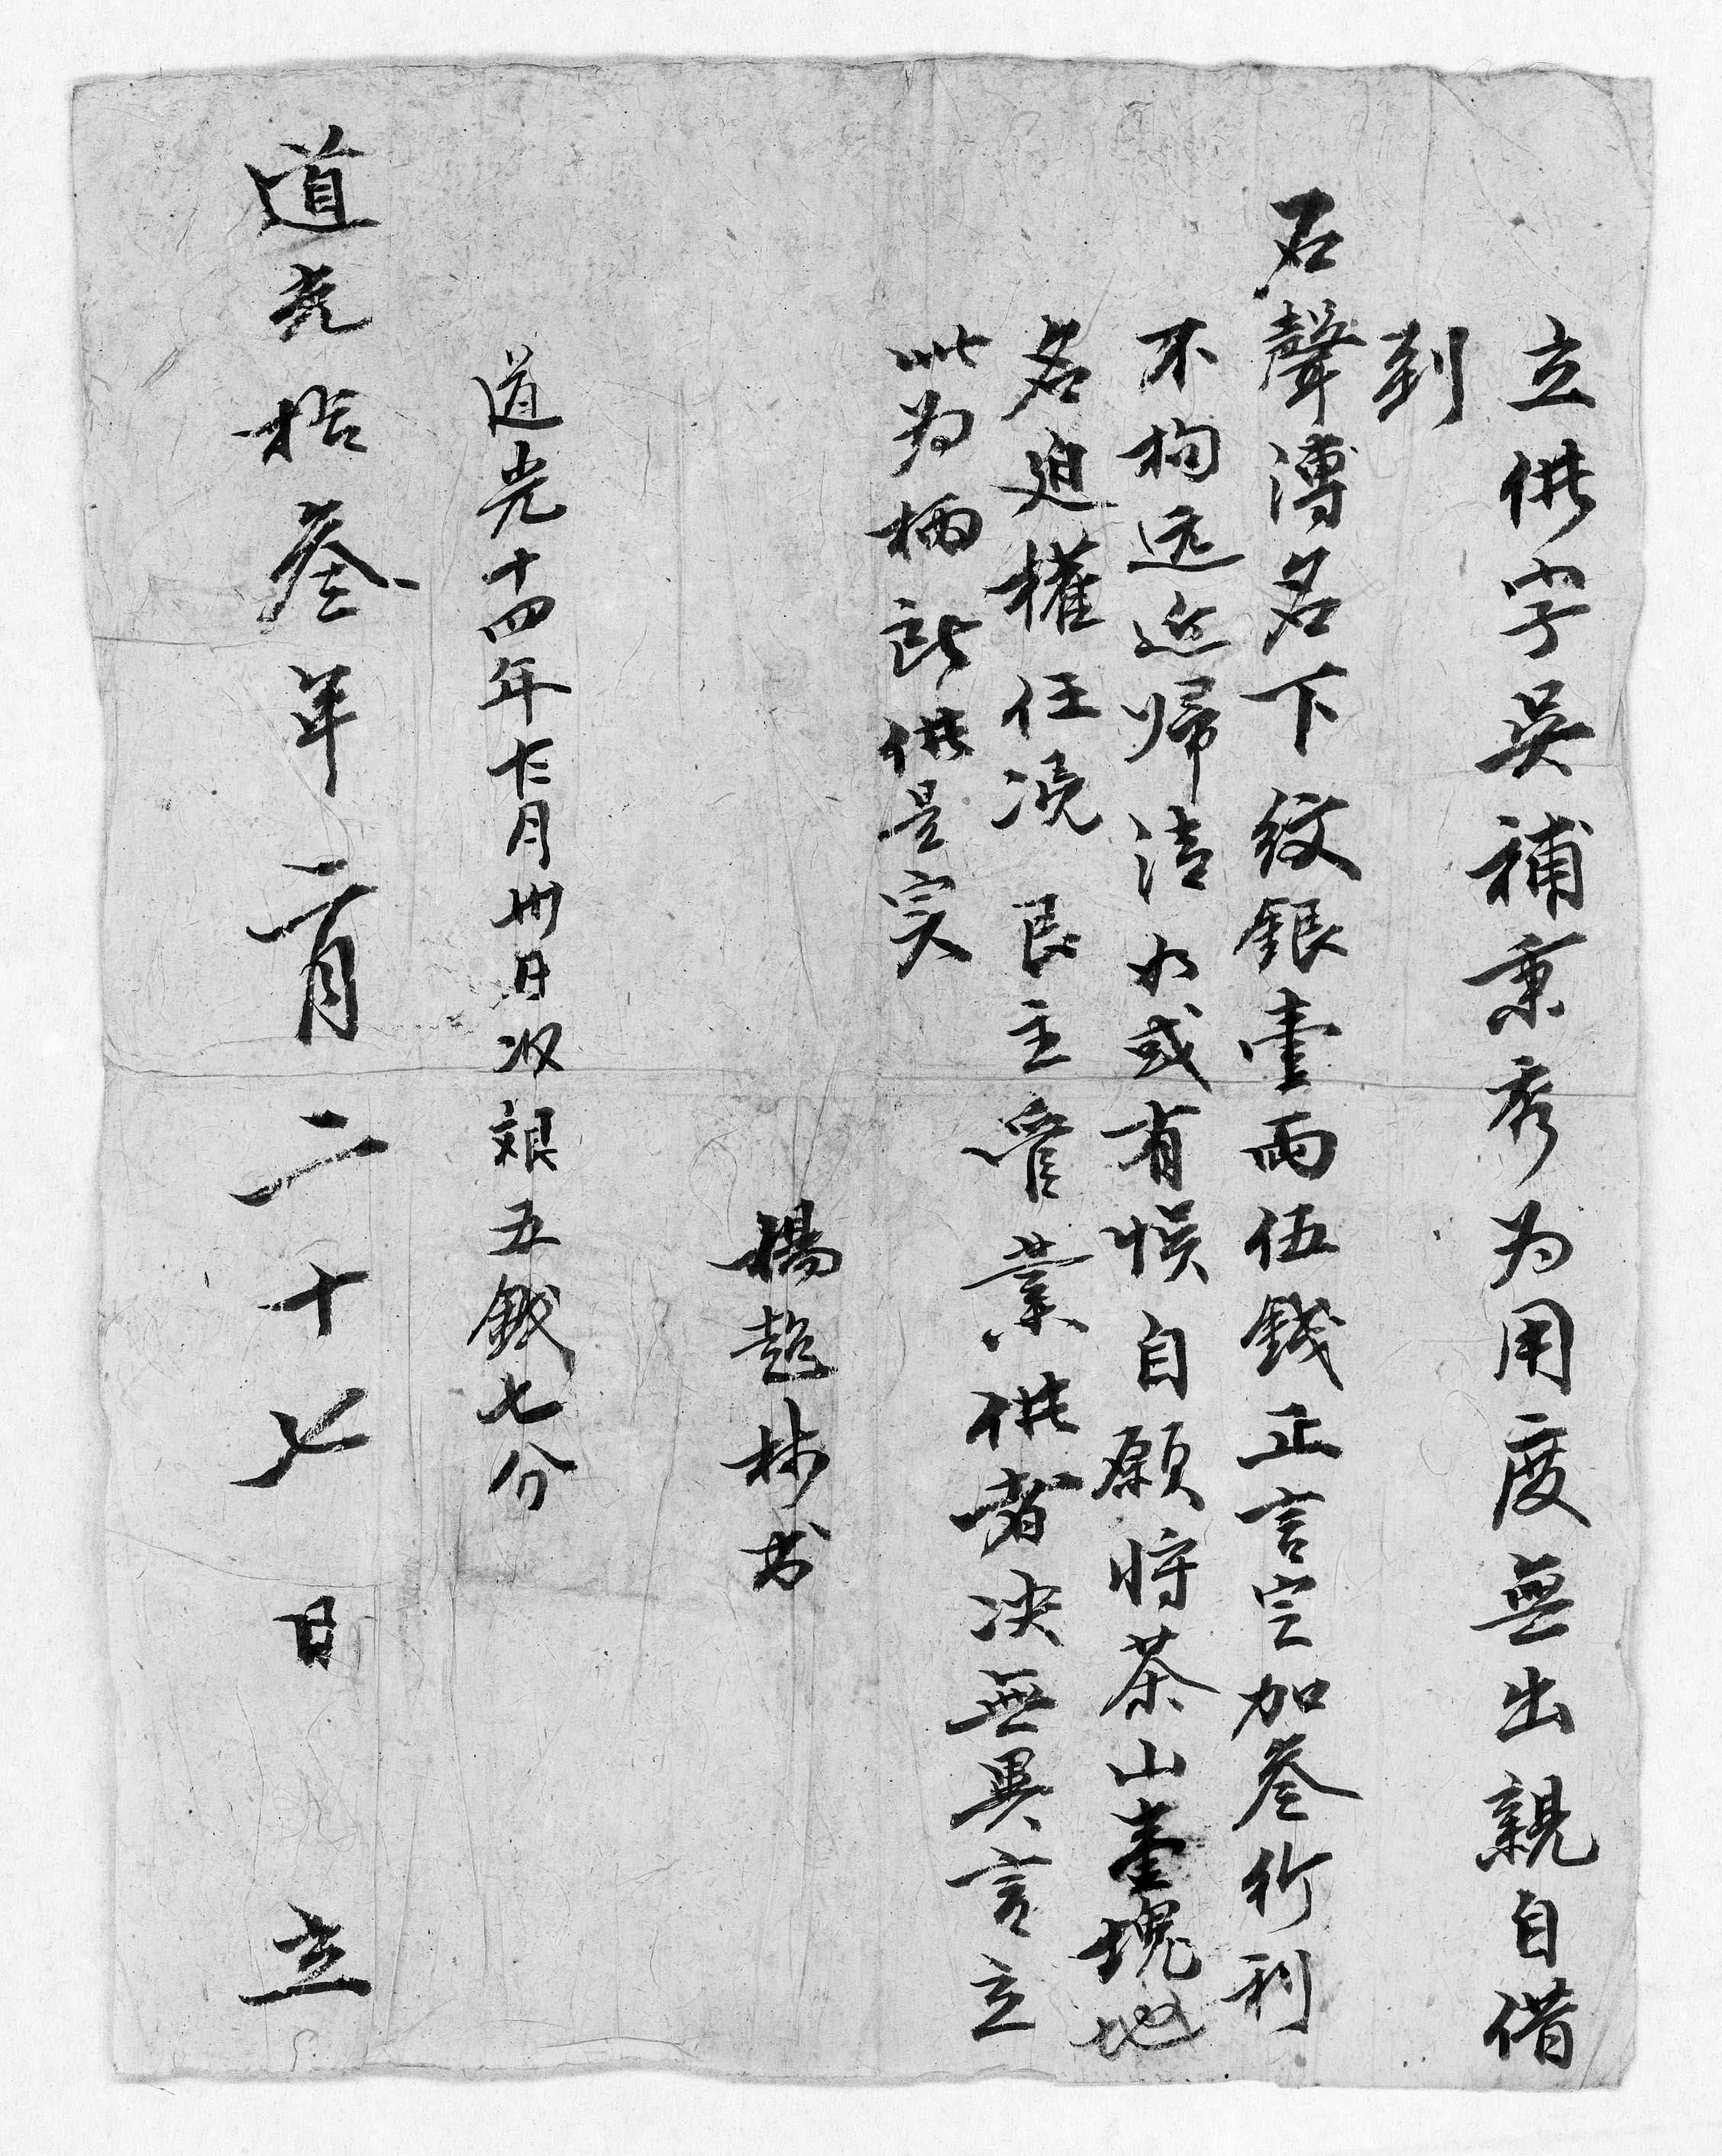 立供字吴補秉秀为用度無出親自借
到
石聲溥名下纹銀壹両伍錢正言定加叁行利
不拘远近歸清如或有悞自願将茶山壹塊地
名追權任凴艮主管業供者决無異言立
此为柄所供是实
楊超林书
道光十四年七月卅日收銀五錢七分
道光拾叁年二月二十七日立